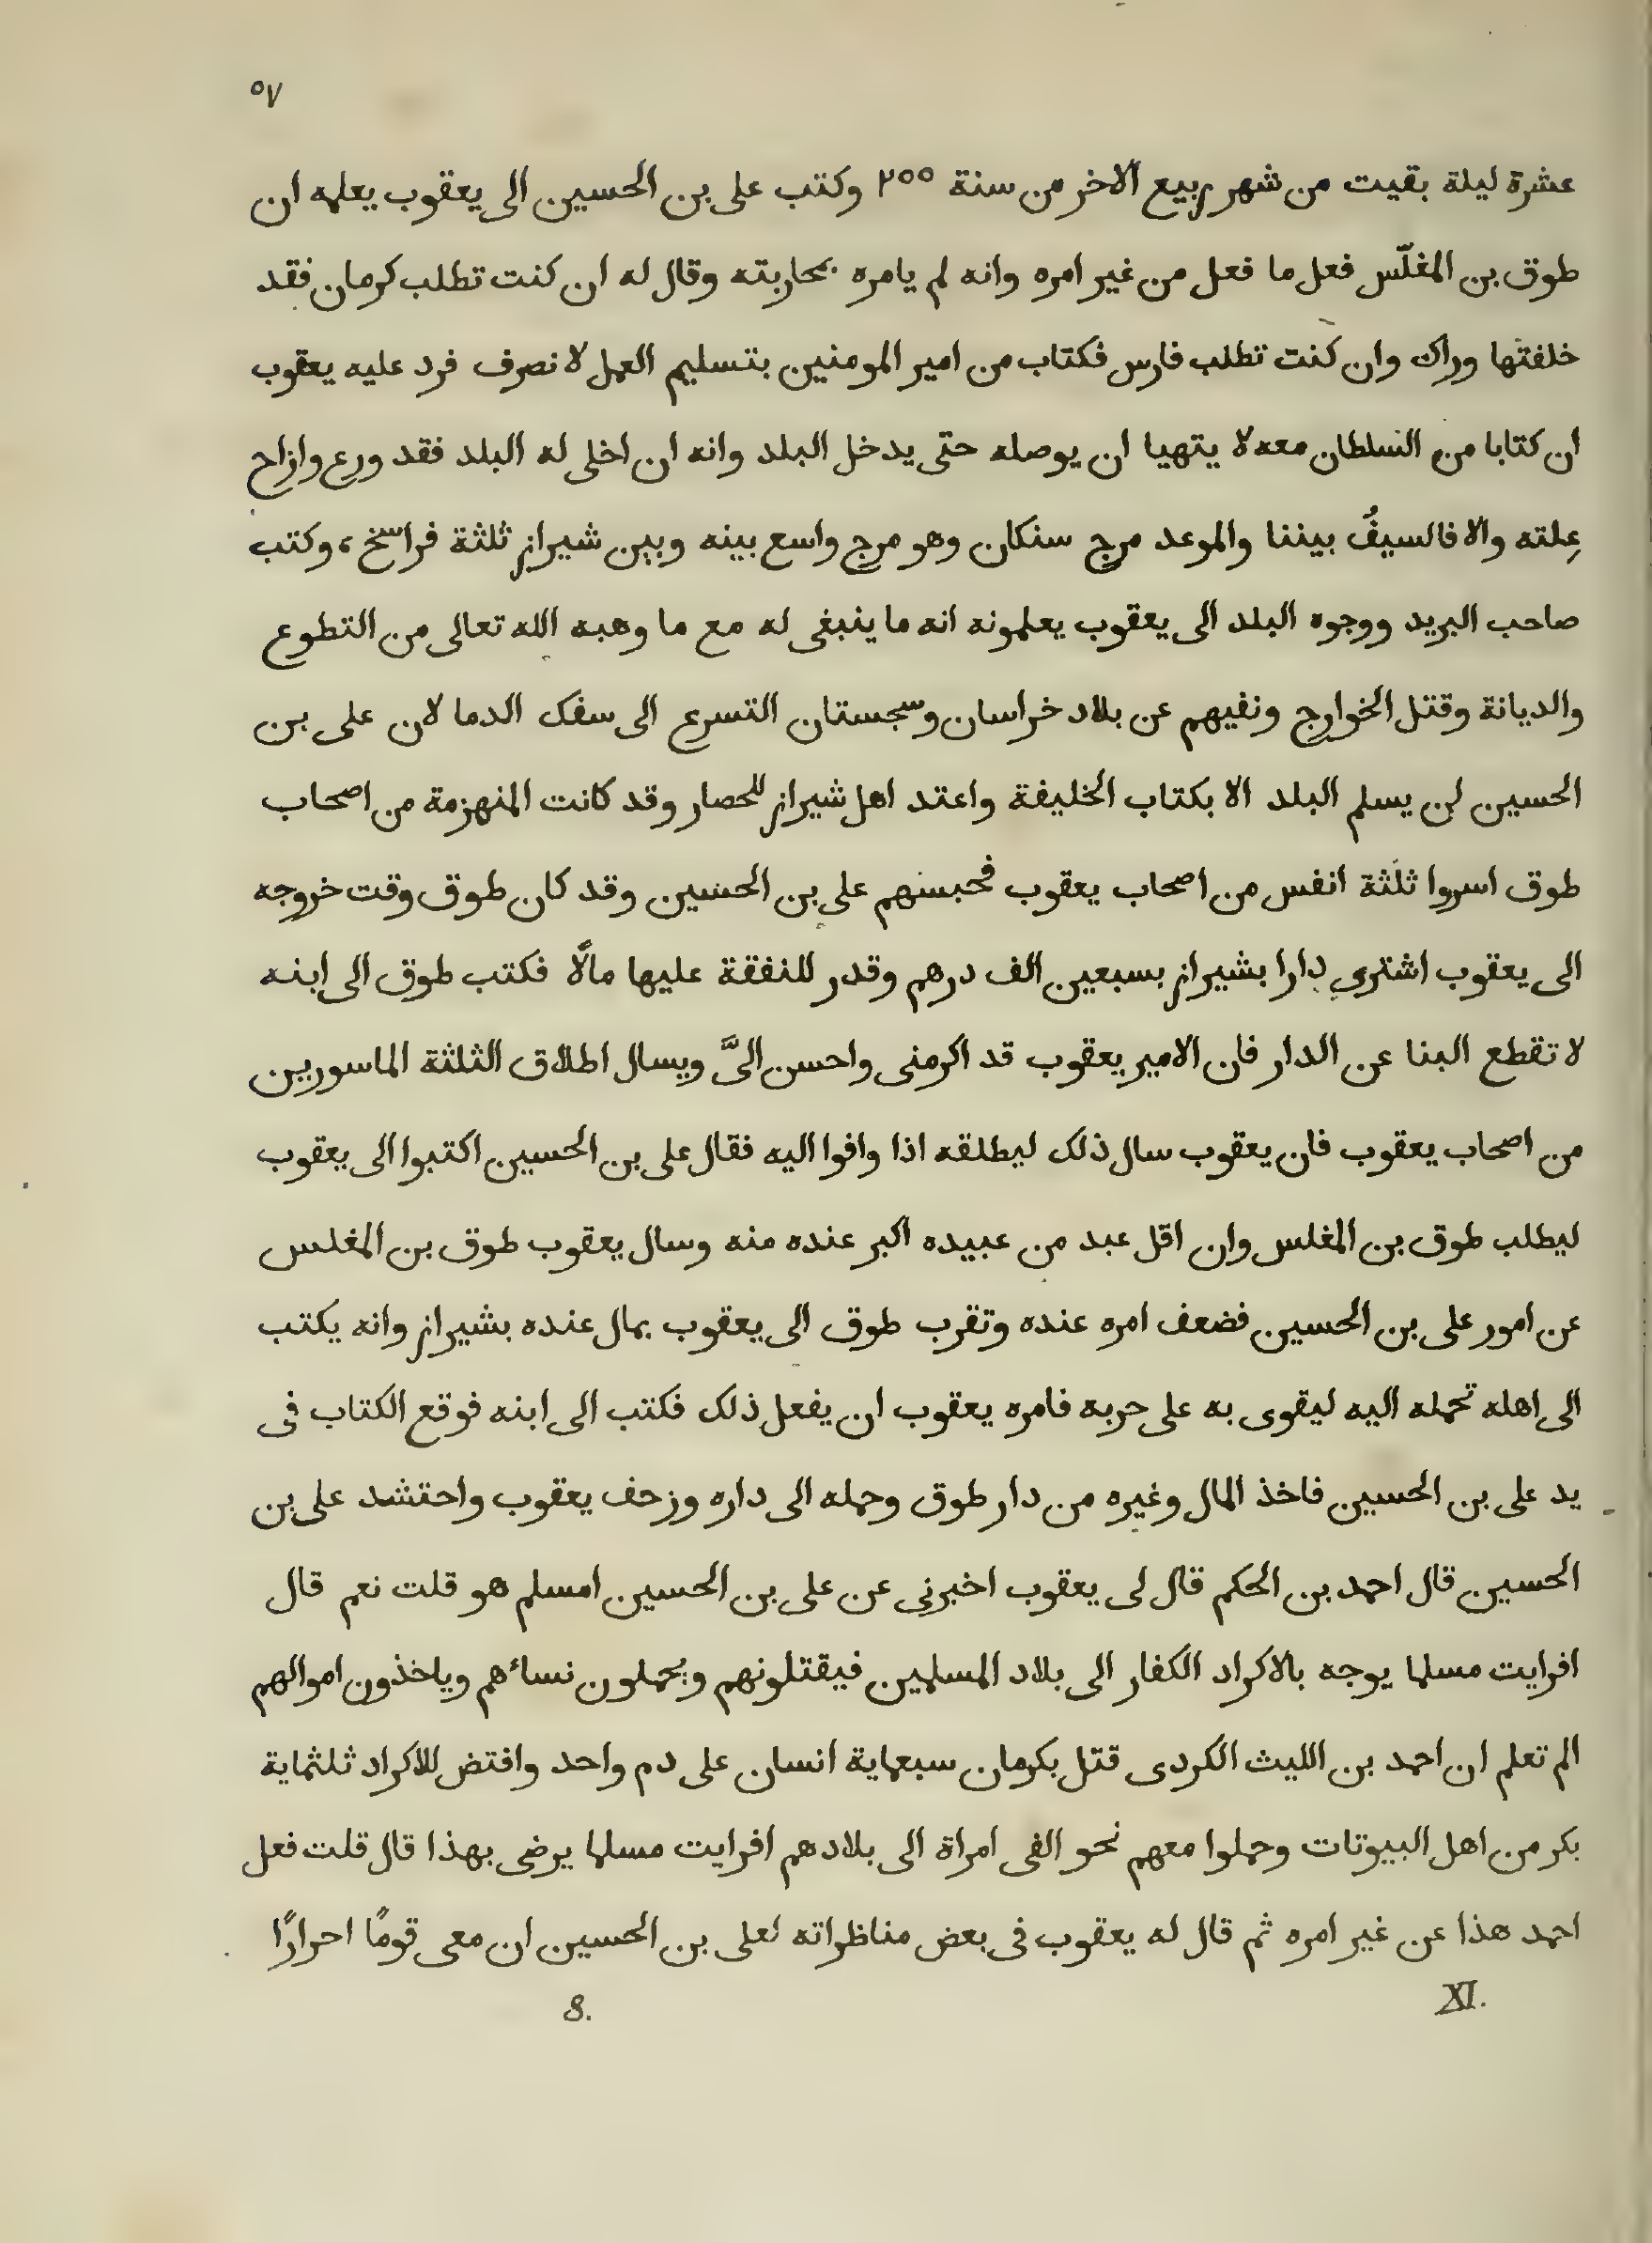 ٥٧
عشرة ليلة بقيت من شهر ربيع الاخر من سنة ٢٥٥ وكتب على بن الحسين الى يعقوب يعلمه ان
طوق بن المغلّس فعل ما فعل من غير امره وانه لم يامره بمحاربته وقال له ان كنت تطلب كرمان فقد
خلفتها وراك وان كنت تطلب فارس فكتاب من امير المومنين بتسليم العمل لانصرف فرد عليه يعقوب
ان كتابا من السلطان معه لا يتهيا ان يوصله حتى يدخل البلد وانه ان اخلى له البلد فقد ورع وازاح
عِلته والا فالسيفُ بيننا والموعد مرج سنكان وهو مرج واسع بينه وبين شيراز ثلثة فراسخ، وكتب
صاحب البريد ووجوه البلد الى يعقوب يعلمونه انه ما ينبغى له مع ما وهبه الله تعالى من التطوع
والديانة وقتل الخوارج ونفيهم عن بلاد خراسان وسجستان التسرع الى سفك الدما لان على بن
الحسين لن يسلم البلد الا بكتاب الخليفة واعتد اهل شيراز للحصار وقد كانت المنهزمة من اصحاب
طوق اسروا ثلثة انفس من اصحاب يعقوب فحبسهم على بن الحسين وقد كان طوق وقت خروجه
الى يعقوب اشترى دارا بشيراز بسبعين الف درهم وقدر للنفقة عليها مالًا فكتب طوق الى ابنه
لا تقطع البنا عن الدار فان الامير يعقوب قد اكرمنى واحسن الىَّ ويسال اطلاق الثلثة الماسورين
من اصحاب يعقوب فان يعقوب سال ذلك ليطلقه اذا وافوا اليه فقال على بن الحسين اكتبوا الى يعقوب
ليطلب طوق بن المغلس وان اقل عبد من عبيده اكبر عنده منه وسال يعقوب طوق بن المغلس
عن امور على بن الحسين فضعف امره عنده وتقرب طوق الى يعقوب بمال عنده بشيراز وانه يكتب
الى اهله تحمله اليه ليقوى به على حربه فامره يعقوب ان يفعل ذلك فكتب الى ابنه فوقع الكتاب فى
يد على بن الحسين فاخذ المال وغيره من دار طوق وحمله الى داره وزحف يعقوب واحتشد على بن
الحسين قال احمد بن الحكم قال لى يعقوب اخبرنِى عن على بن الحسين امسلم هو قلت نعم قال
افرايت مسلما يوجه بالاكراد الكفار الى بلاد المسلمين فيقتلونهم ويحملون نساءهم وياخذون اموالهم
الم تعلم ان احمد بن الليث الكردى قتل بكرمان سبعماية انسان على دم واحد وافتض للاكراد ثلثماية
بكر من اهل البيوتات وحملوا معهم نحو الفى امراة الى بلادهم افرايت مسلما يرضى بهذا قال قلت فعل
احمد هذا عن غير امره ثم قال له يعقوب فى بعض مناظراته لعلى بن الحسين ان معى قومًا احرارًا
XI. 8.